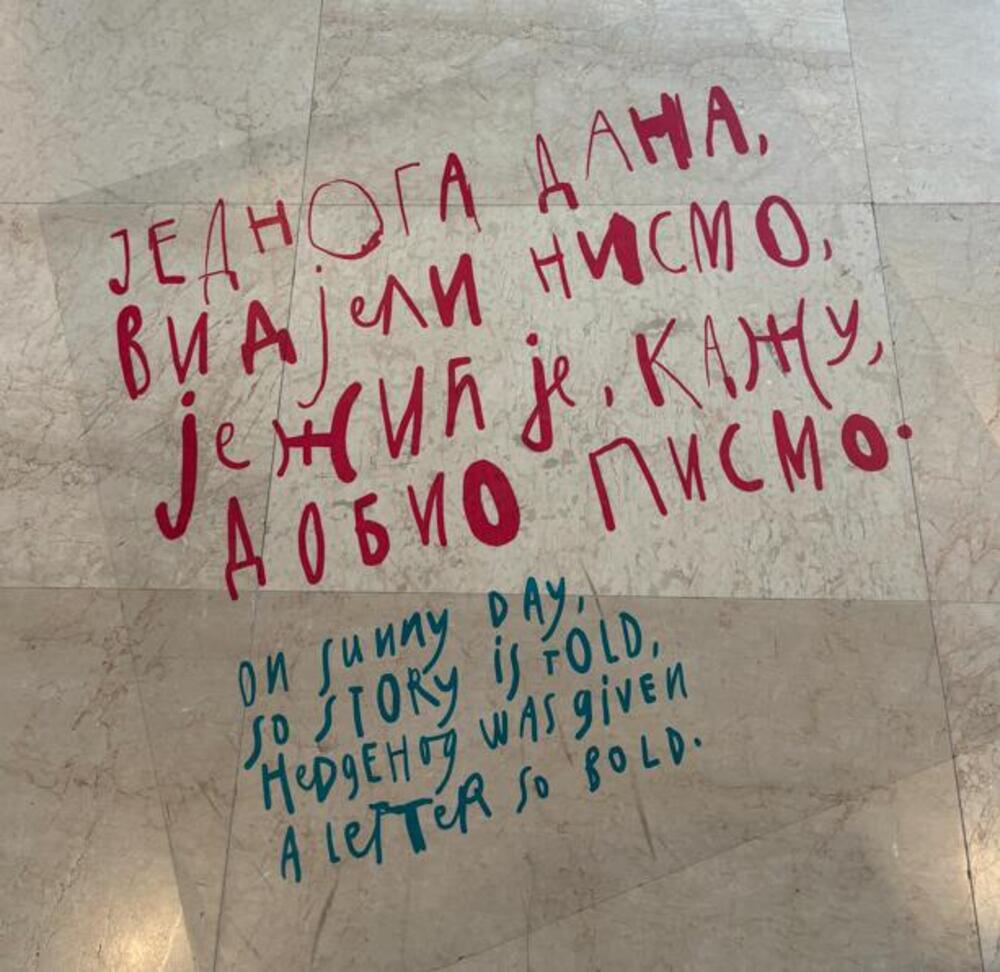 ЈЕДНОГА ДАНА,
ВИДЈЕЛИ НИСМО,
ЈЕЖИЋ ЈЕ, КАЖУ,
ДОБИО ПИСМО.
ON SUNNY DAY,
SO STORY IS TOLD,
HEDGEHOG WAS GIVEN
A LETTER SO BOLD.